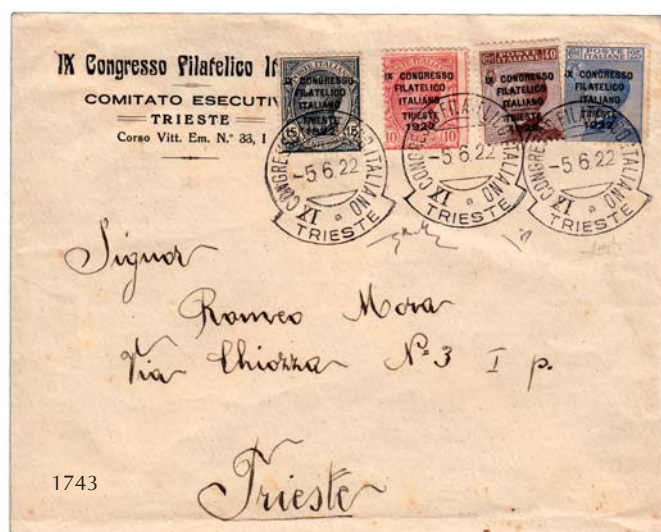 IX Congresso Filatelico It
COMITATO ESECUTIV
TRIESTE
Corso Vitt. Em. N.° 33, I
15 15
IX CONGRESSO
FILATELICO
ITALIANO
TRIESTE
1922
10 10
IX CONGRESSO
FILATELICO
ITALIANO
TRIESTE
1922
40
IX CONGRESSO
FILATELICO
ITALIANO
TRIESTE
1922
POSTE 25
ITALIANE
IX CONGRESSO
FILATELICO
ITALIANO
TRIESTE
1922
IX CONGRESSO ITALIANO
-5 6 22
TRIESTE
IX CONGRESSO FILATELICO ITALIANO
-5 6 22
TRIESTE
IX CONGRESSO FILATELICO ITALIANO
-5 6 22
TRIESTE
Signor
Romeo Mora
Via Chiozza N.º 3 I p.
Trieste
1743